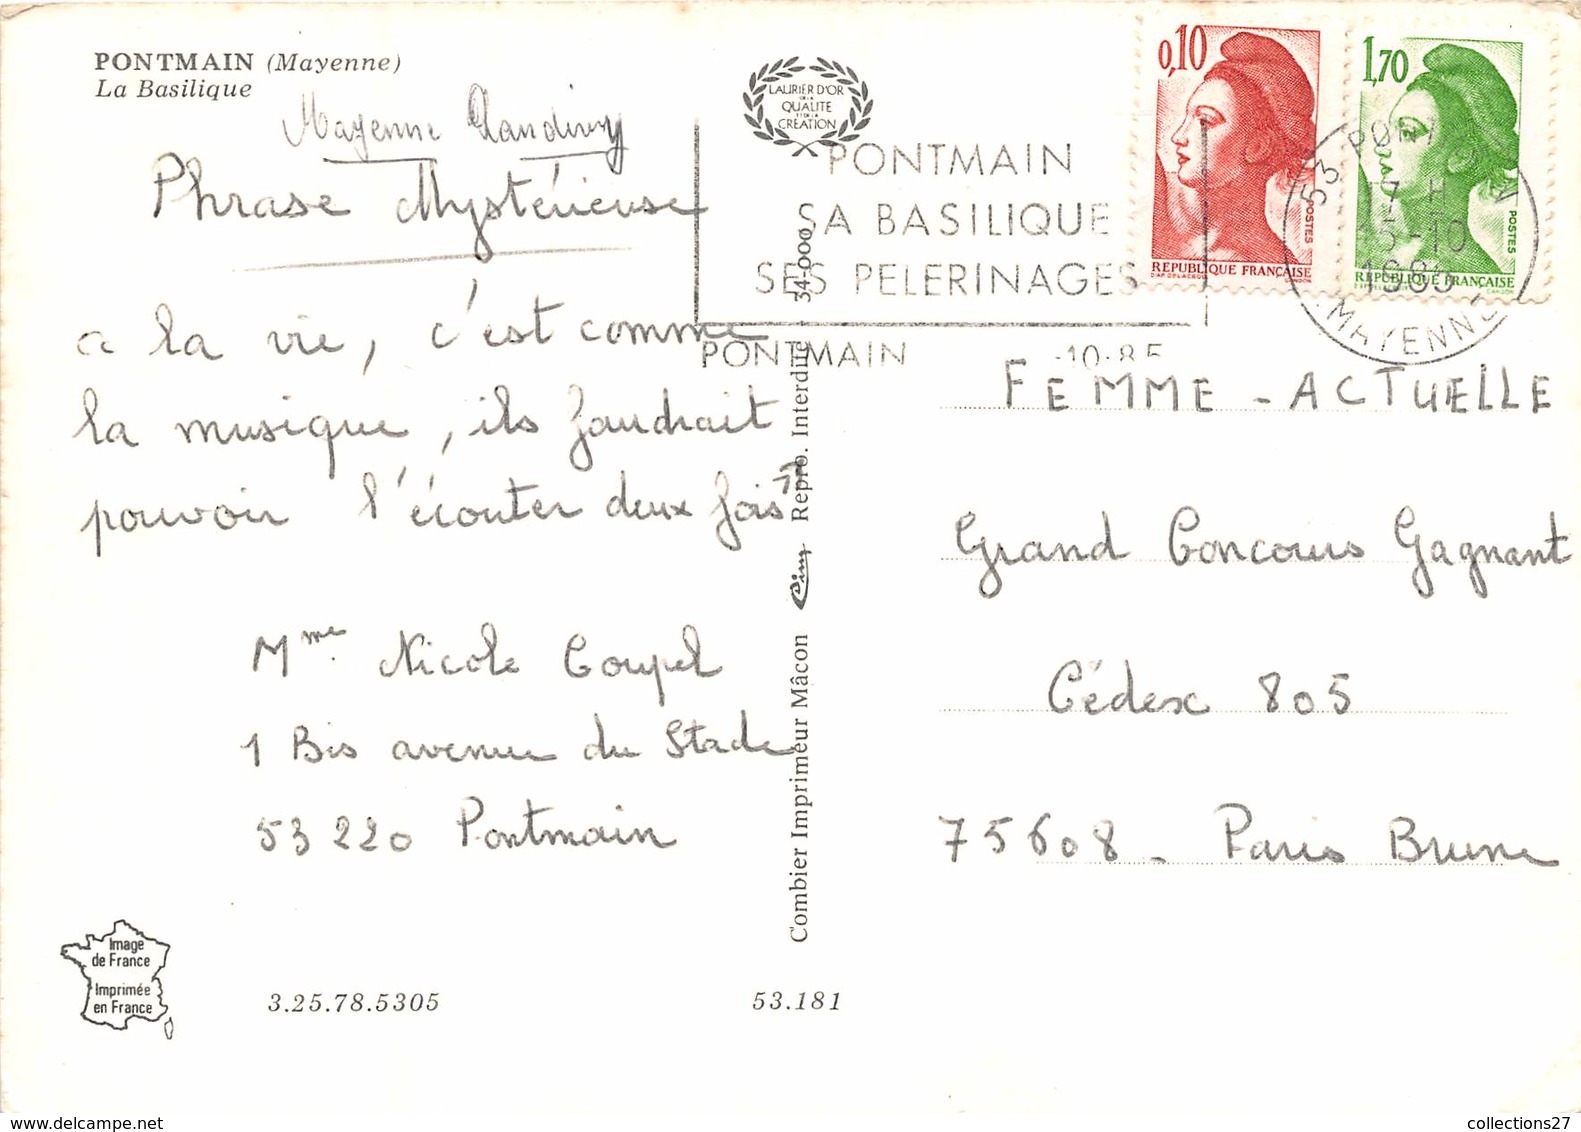 PONTMAIN (Mayenne)
La Basilique
Mayenne Landivy
Phrase Mystérieuse
a la vie, c'est comme
la musique, ils faudrait
pouvoir l'écouter deux fois"
Mme Nicole Coupel
1 Bis avenue du Stade
53220 Pontmain
Image
de France
Imprimée
en France
3.25.78.5305
53.181
Combier Imprimeur Mâcon Cim Repro. Interdite 34-000
LAURIER D'OR
DE LA
QUALITE
ET DE LA
CREATION
PONTMAIN
SA BASILIQUE
SES PELERINAGES
PONTMAIN -10-85
0,10
POSTES
REPUBLIQUE FRANÇAISE
D'AP. DELACROIX GANDON
1,70
POSTES
REPUBLIQUE FRANÇAISE
GANDON
53 PONTMAIN
17 H
15-10
1985
MAYENNE
FEMME - ACTUELLE
Grand Concours Gagnant
Cédex 805
75608 - Paris Brune
collections27